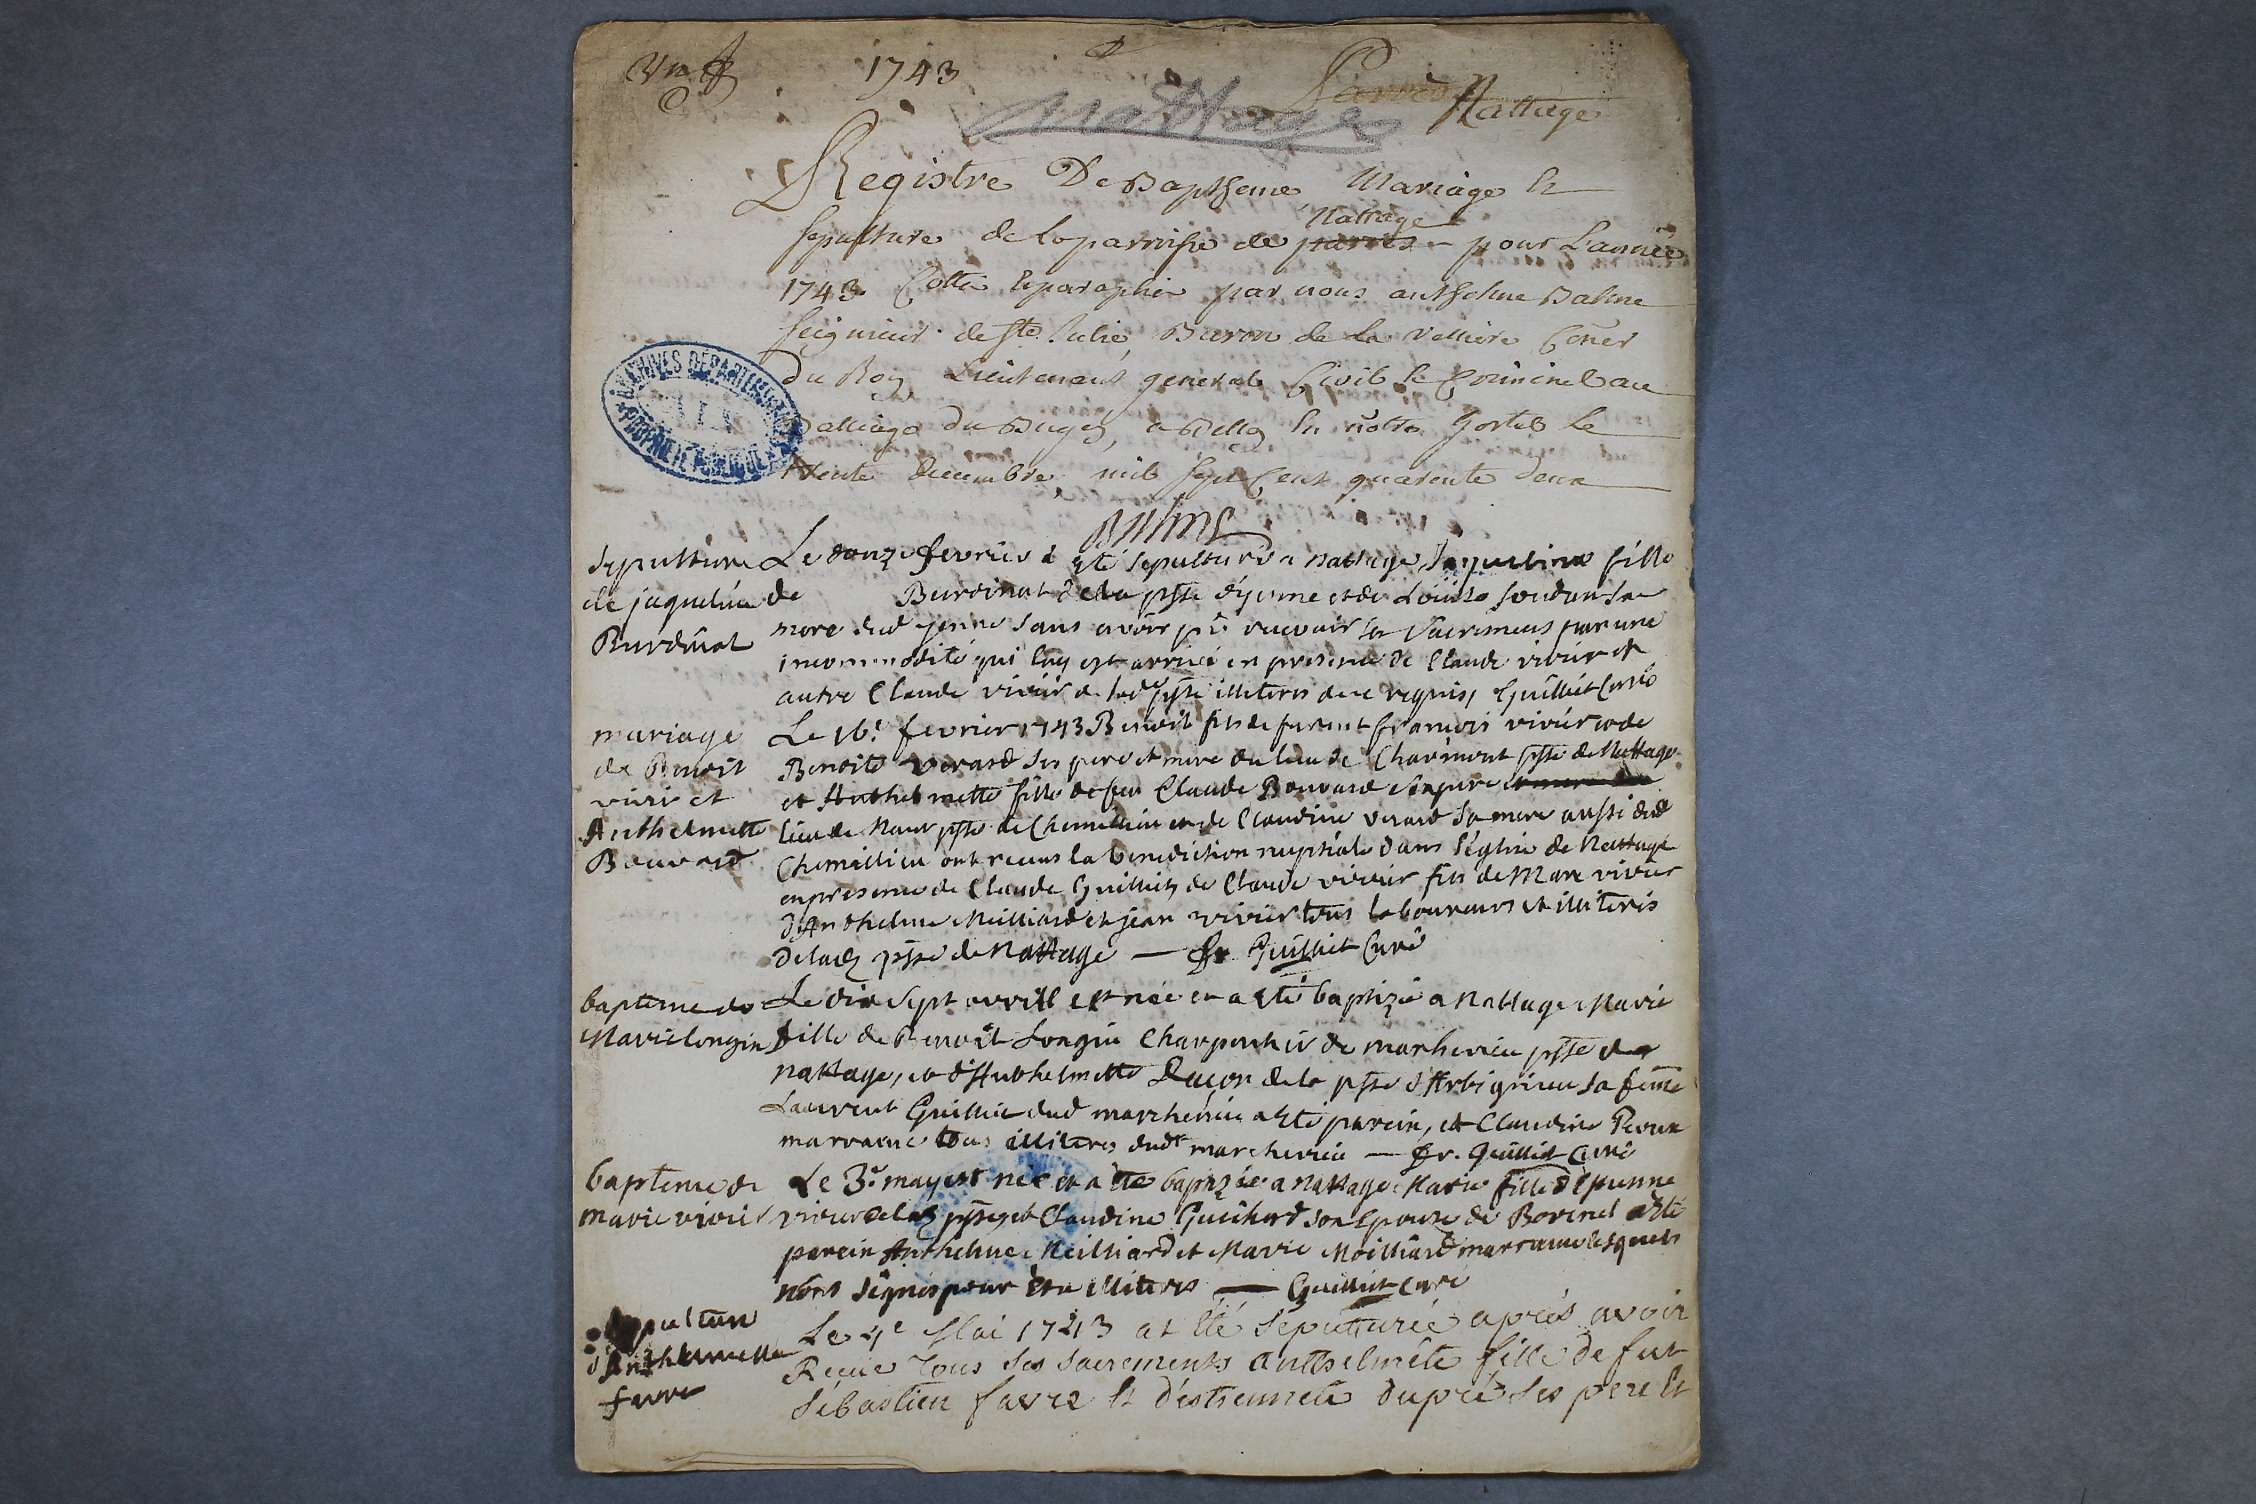 1743
Parves Nattage
Nattage
Registre De Baptheme, Mariage Et
Sepulture de la parroisse de parves Nattage pour L'année
1743 Cotté et paraphé par nous anthelme Balme
seigneur de Ste Julie, Baron de la velliere Coner
Du Roy Lieutenant general Civil et Criminel au
Balliage du Bugey, a Belley En nôtre hostel le
trente decembre, mil sept Cent quarente deux
BALME
ARCHIVES DÉPARTEMENTALES
PROPRIÉTÉ PUBLIQUE
AIN
sepulture
de jaqueline
Burdinat
Le douze fevrier a eté sepulturée a nattage Jaqueline fille
de Burdinat de la psse d'yenne et de Louise
mere dud yenne sans avoir pû recevoir les sacremens par une
incommodité qui luy est arrivée en presence de Claude vivier et
autre Claude vivier de lade psse illiteres de ce requis, Guilliet Curé
mariage
de Benoit
vivier et
Anthelmette
Bouvard
Le 16e fevrier 1743 Benoit fils de François vivier et de
Benoite verard ses pere et mere du lieu de Charimont psse de Nattage
et Anthelmette fille de feu Claude Bouvard son pere et mere
lieu de Nant psse de Chemillieu et de Claudine verard sa mere aussi dud
Chemillieu ont receus la benediction nuptiale dans l'église de Nattage
en presence de Claude Guilliet, de Claude vivier fils de Marc vivier
d'Anthelme Meilliard et jean vivier tous laboureurs et illiteres
de lade psse de Nattage — Fr. Guilliet Curé
bapteme de
Marie longin
Le dix sept avrill est née et a eté baptizée a Nattage Marie
fille de Benoît Longin Charpentier de marherieu psse de
Nattage, et d'Anthelmette Duçon de la psse d'Arbignieu sa feme
Laurent Guilliet dud marcherieu a eté parein, et Claudine
marraine tous illiteres dudt marcherieu — Fr. Guilliet Curé
bapteme de
marie vivier
Le 3e may est née et a ete baptizée a Nattage Marie fille d'Etienne
vivier de lad psse et Claudine Guichard son Epouse de Borinel a eté
parein Anthelme Meilliard et Marie Meilliard marraine lesquels
n'ont signés pour etre illiteres — Guilliet Curé
sepulture
d'Anthelmette
favre
Le 4e Mai 1743 at eté sepulturée aprés avoir
Receue Tous ses sacrements anthelmete fille de fut
Sébastien favre Et d'estiennete dupré ses pere Et